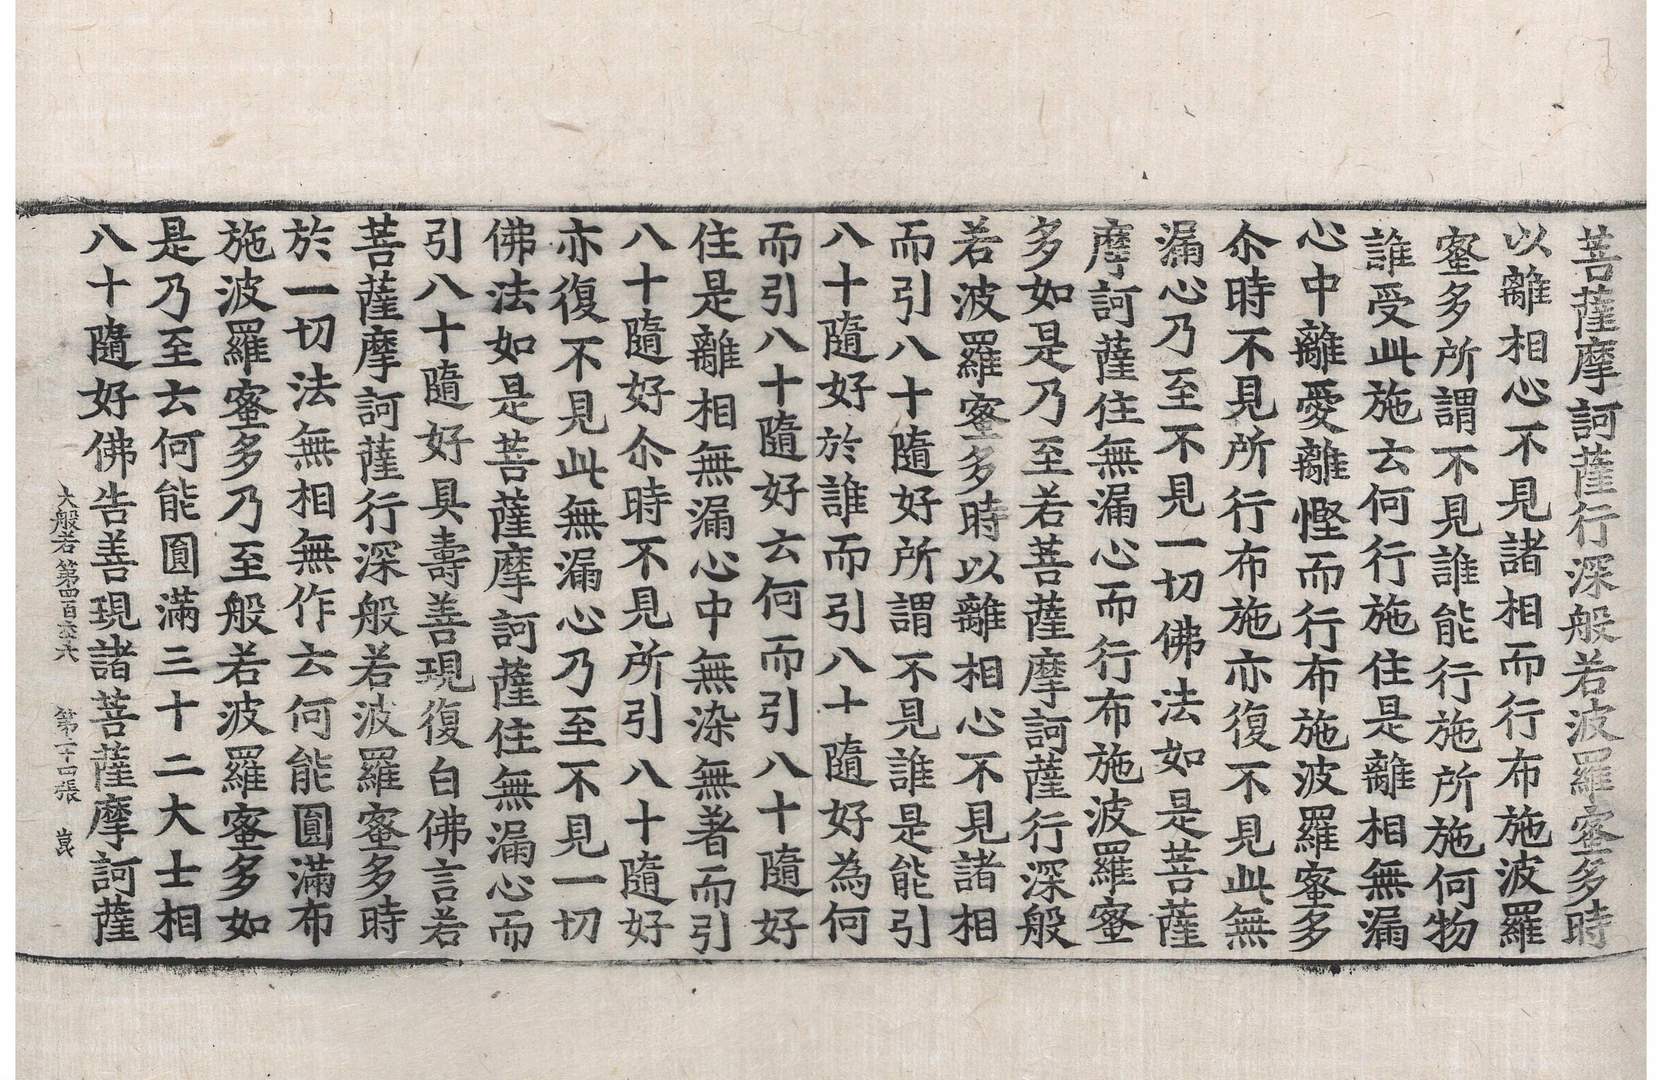 菩薩摩訶薩行深般若波羅蜜多時
以離相心不見諸相而行布施波羅
蜜多所謂不見誰能行施所施何物
誰受此施云何行施住是離相無漏
心中離愛離慳而行布施波羅蜜多
尒時不見所行布施亦復不見此無
漏心乃至不見一切佛法如是菩薩
摩訶薩住無漏心而行布施波羅蜜
多如是乃至若菩薩摩訶薩行深般
若波羅蜜多時以離相心不見諸相
而引八十隨好所謂不見誰是能引
八十隨好於誰而引八十隨好為何
而引八十隨好云何而引八十隨好
住是離相無漏心中無染無著而引
八十隨好尒時不見所引八十隨好
亦復不見此無漏心乃至不見一切
佛法如是菩薩摩訶薩住無漏心而
引八十隨好具壽善現復白佛言若
菩薩摩訶薩行深般若波羅蜜多時
於一切法無相無作云何能圓滿布
施波羅蜜多乃至般若波羅蜜多如
是乃至云何能圓滿三十二大士相
八十隨好佛告善現諸菩薩摩訶薩
大般若第四百六十六 第二十四張 崑